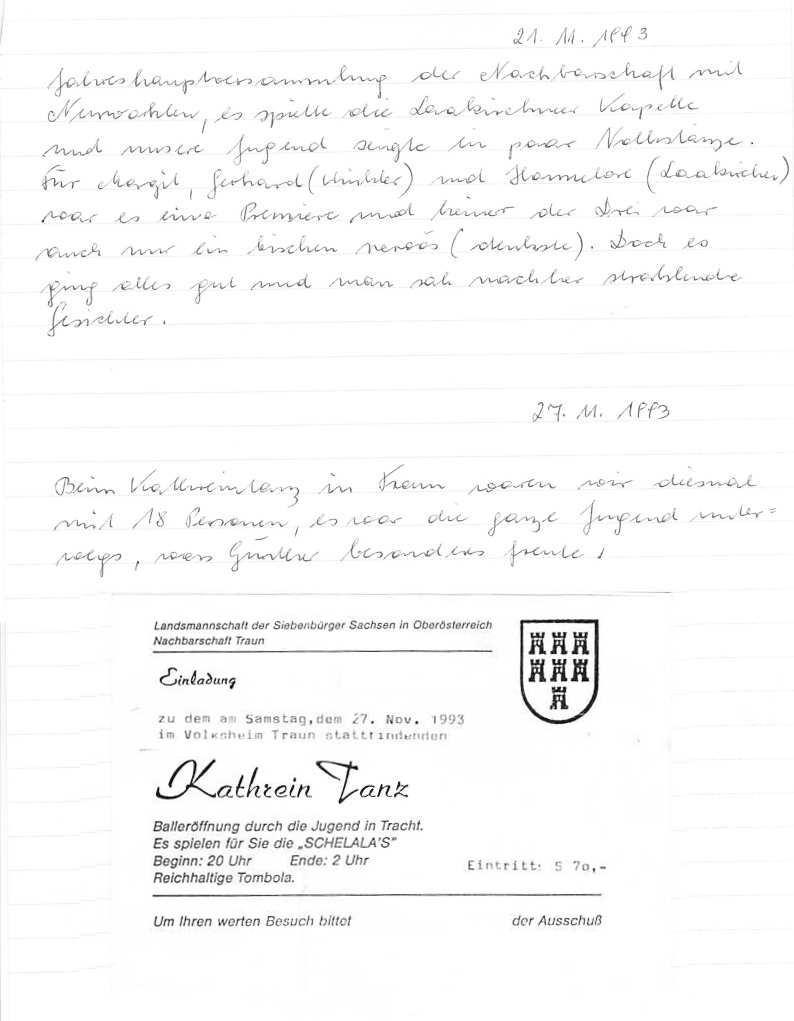 21. 11. 1993
Jahreshauptversammlung der Nachbarschaft mit
Neuwahlen, es spielte die Laakirchner Kapelle
und unsere Jugend zeigte ein paar Volkstänze.
Für Margit, Gerhard (Winkler) und Hannelore (Laakirchen)
war es eine Premiere und keiner der Drei war
auch nur ein bischen nervös (denkste). Doch es
ging alles gut und man sah nachher strahlende
Gesichter.
27. 11. 1993
Beim Kathreintanz in Traun waren wir diesmal
mit 18 Personen, es war die ganze Jugend unter=
wegs, was Günther besonders freute!
Landsmannschaft der Siebenbürger Sachsen in Oberösterreich
Nachbarschaft Traun
Einladung
zu dem am Samstag,dem 27. Nov. 1993
im Volksheim Traun stattfindenden
Kathrein Tanz
Balleröffnung durch die Jugend in Tracht.
Es spielen für Sie die „SCHELALA'S"
Beginn: 20 Uhr Ende: 2 Uhr
Eintritt: S 70,-
Reichhaltige Tombola.
Um Ihren werten Besuch bittet der Ausschuß